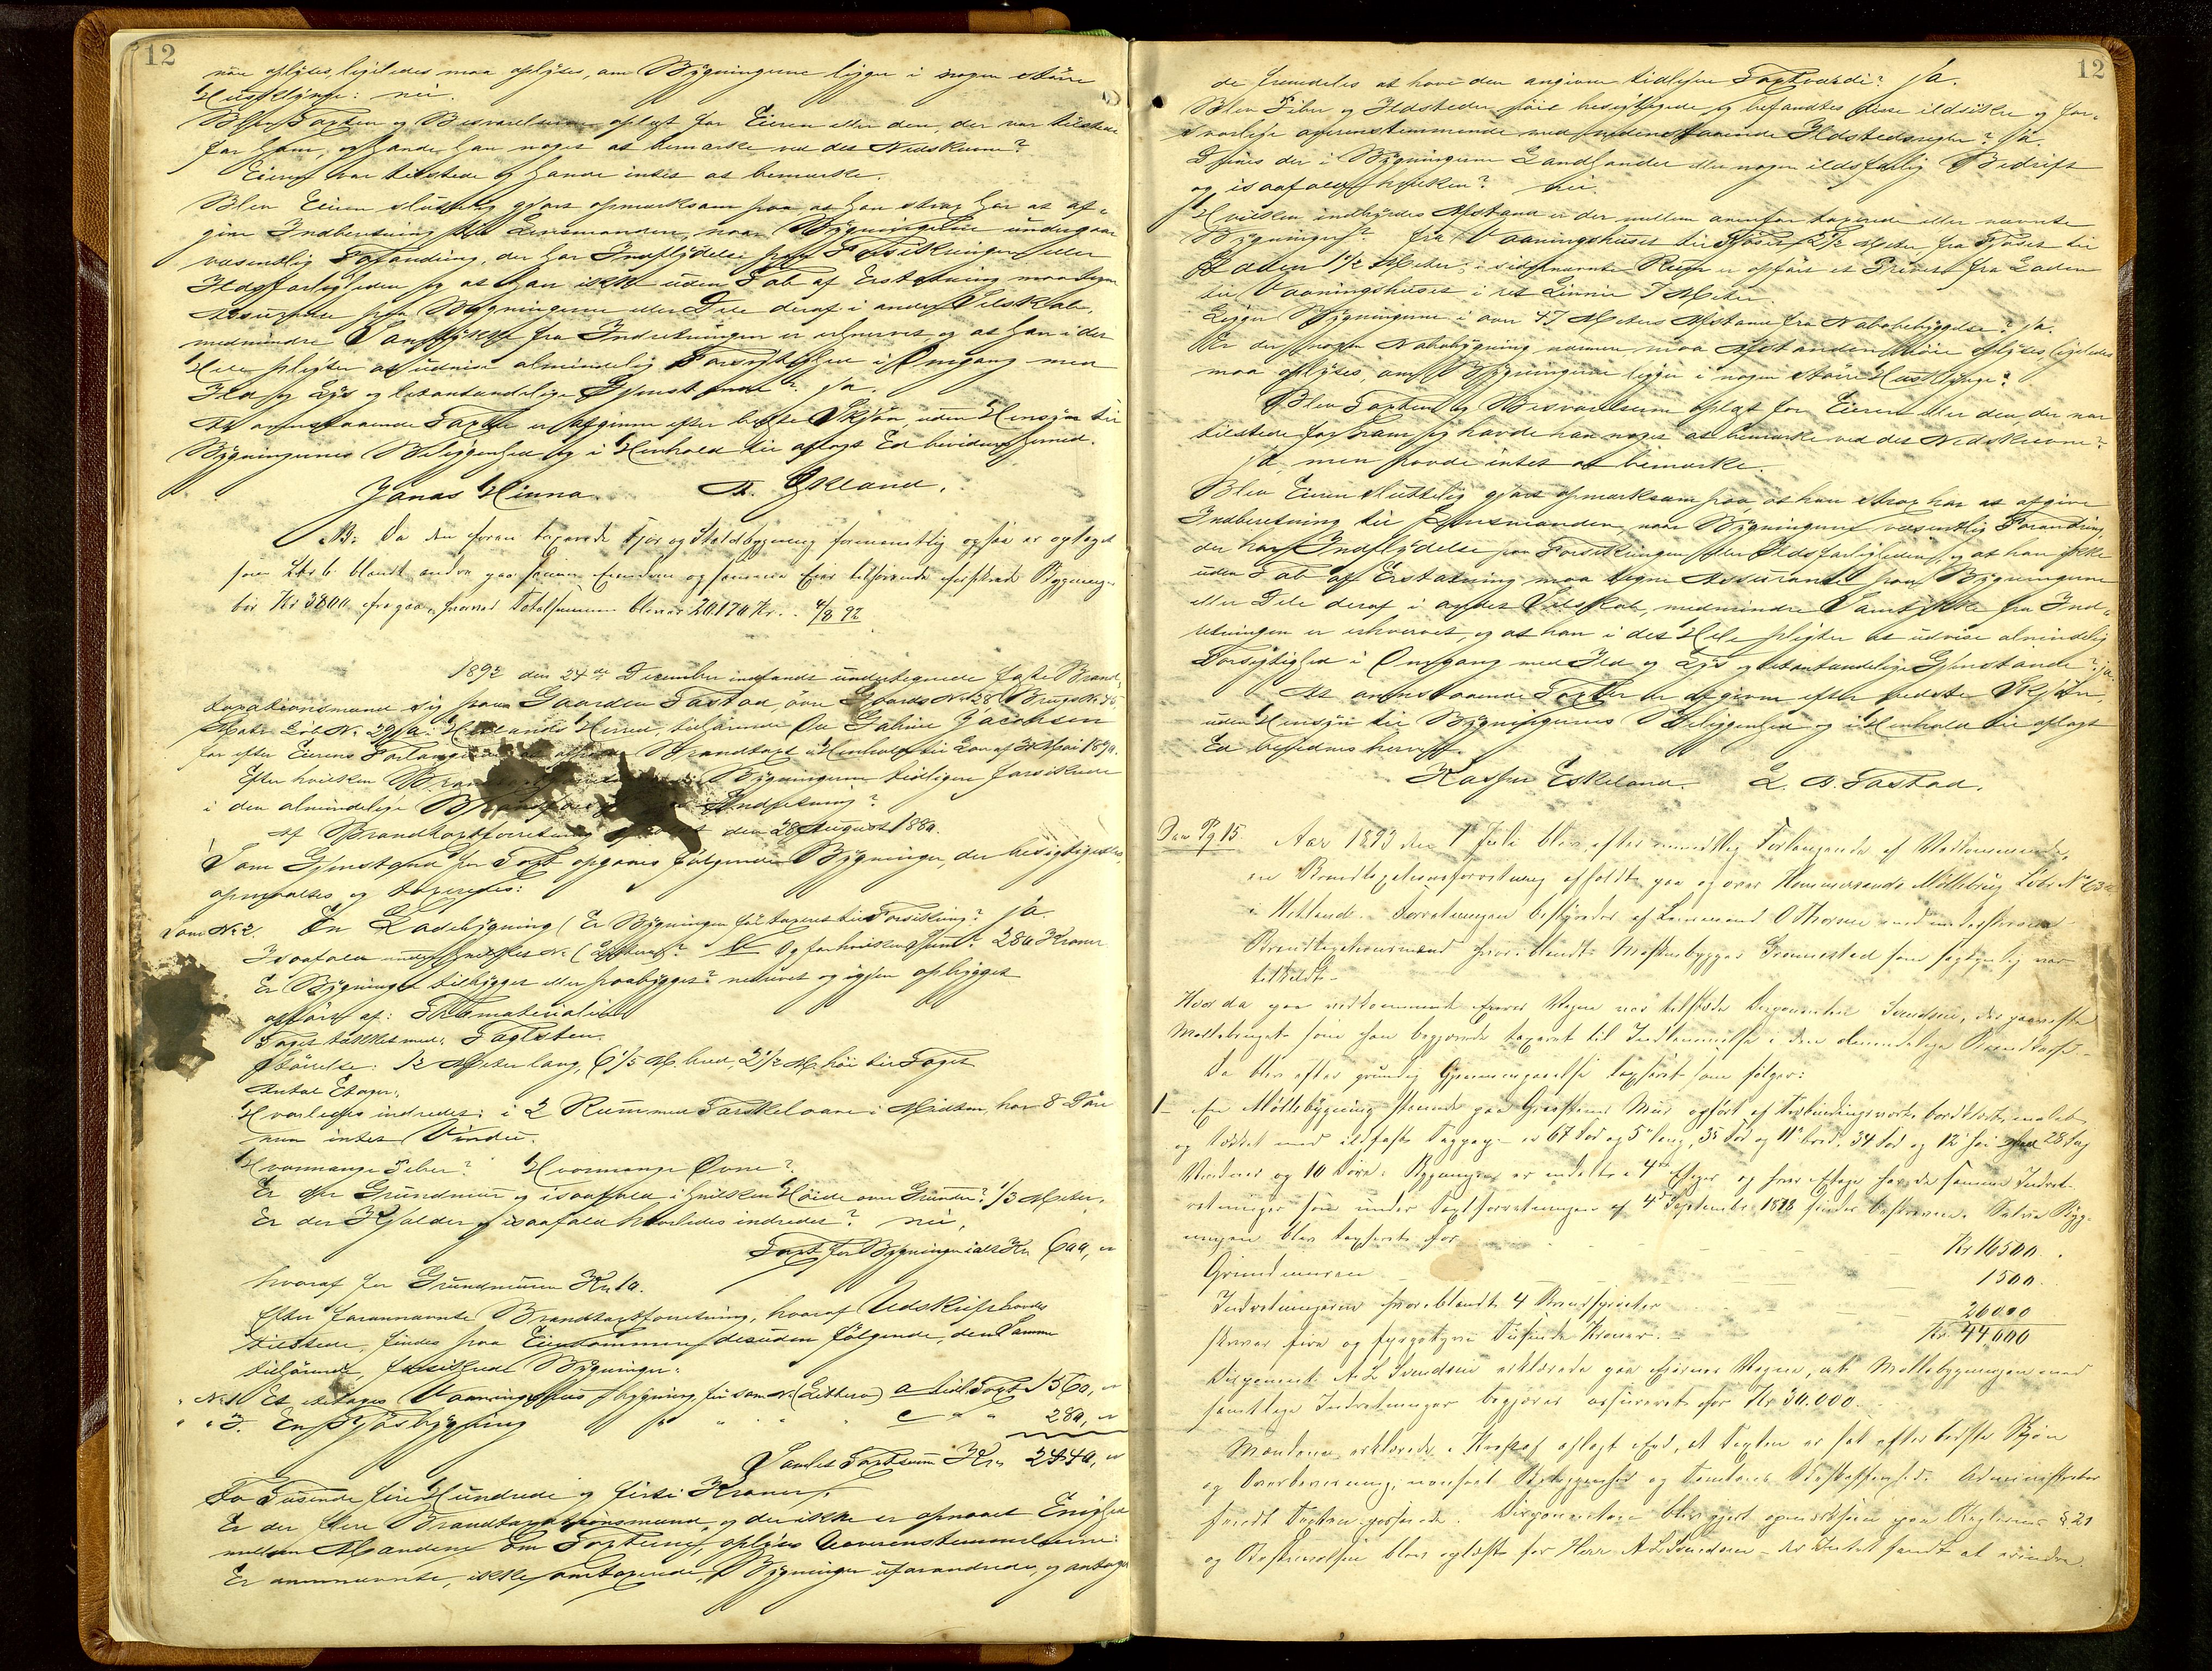 12
nöie oplyses, ligeledes maa oplyses, om Bygningerne ligger i nogen större
Husklynge: nei.
Blev Taxten og Besvarelserne oplæst for Eieren eller den, der var tilstede
for ham, og havde han noget at bemærke ved det Nedskrevne?
Eieren var tilstede og havde intet at bemærke.
Blev Eieren sluttelig gjort opmærksom paa at han strax har at af-
give Indberetning til Lensmanden, naar Bygningerne undergaar
væsentlig Forandring, der har Indflydelse paa Forsikringen eller
Ildsfarligheden og at han ikke uden Tab af Erstatning maa tegne
Assurance paa Bygningerne eller Dele deraf i andet Selskab,
medmindre Samtykke fra Indretningen er erhvervet og at han i det
Hele pligter at udvise almindelig Forsigtighed i Omgang med
Ild og Lys og letantændelige Gjenstande? ja.
At ovenstaaende Taxter er afgivne efter bedste Skjön, uden Hensyn til
Bygningernes Beliggenhed og i Henhold til aflagt Ed bevidnes herved.
Jonas Hinna. A. Ykland.
B: Da den foran taxerede Fjös og Staldbygning formentlig ogsaa er optaget
som Litr b. blandt andre paa samme Eiendom og samme Eier tilhörende forsikrede Bygninger
bör Kr 3800 fragaa, hvorved Totalsummen bliver 20170 Kr. 4/8 92
1892 den 24de December indfandt undertegnede faste Brand-
taxationsmænd sig paa Gaarden Tastad, övre Gaards No 28 Brugs No 45
Matr. Löb No 29 a Hetlands Herred, tilhörende Ole Gabriel Jacobsen
for efter Eierens Forlangende at afholde Brandtaxt i Henhold til Lov af Mai 1890.
Efter hvilken Bran Bygningerne tidligere forsikrede
i den almindelige Brandfor Indretning?
Af Brandtaxtforretning den 28 August 1880.
Som Gjenstand for Taxt opgaves fölgende Bygninger, der besigtigedes
opmaaltes og taxeredes:
Som No 2. En Ladebygning (Er Bygningen för taxeret til Forsikring? ja.
Isaafald under hvilket No (Littera)? b Og for hvilken Sum? 280 Kroner
Er Bygningen tilbygget eller paabygget? nedrevet og igjen opbygget
opfört af: Træmaterialier
Taget tækket med: Taglsten.
Störrelse: 12 Meter lang, 6 1/5 M. bred, 2 1/2 M. höi til Taget
Antal Etager:
Hvorledes indredet: i 2 Rum med Tærskelovn i Midten, har 8 Döre
men intet Vindu.
Hvormange Piber? Hvormange Ovne?
Er der Grundmur og isaafald i hvilken Höide over Grunden? 1/3 Meter.
Er der Kjælder og isaafald hvorledes indredet? nei.
Taxt for Bygningen ialt Kr. 600, "
hvoraf for Grundmuren Kr. 10.
Efter forannævnte Brandtaxtforretning, hvoraf Udskrift havdes
tilstede, findes paa Eiendommen desuden fölgende, den samme
tilhörende, forsikrede Bygninger:
No 1 Et etages Vaaningshus bygning, för som No (Littera) a tidl. Taxt 1560, "
" " 3. En Fjösbygning " " " " c " " 280, "
Samlet Taxtsum Kr. 2440, "
To Tusende fire Hundrede og firti Kroner.
Er der flere Brandtaxationsmænd, og der ikke er opnaaet Enighed
mellem Mændene om Taxterne, oplyses Uoverenstemmelserne:
Er ovennævnte, ikke omtaxerede, Bygninger uforandrede, og antages
12
de fremdeles at have den angivne tidligere Taxtværdi? ja.
Blev Piber og Ildsteder nöie besigtigede og befandtes disse ildsikre og for-
svarlige overenstemmende med nedenstaaende Ildstedsregler? ja.
Drives der i Bygningerne Landhandel eller nogen ildsfarlig Bedrift
og isaafald hvilken? nei.
Hvilken indbyrdes Afstand er der mellem ovenfor taxerede eller nævnte
Bygninger? fra Vaaningshuset til Fjöset 5 1/2 Meter, fra Fjöset til
Laden 1 1/2 Meter; i sidstnævnte Rum er opfört et Privet fra Laden
til Vaaningshuset i ret Linnie 7 Meter.
Ligger Bygningerne i over 47 Meters Afstand fra Nabobebyggelse? ja.
Er der nogen Nabobygning nærmere maa Afstanden nöie oplyses, ligeledes
maa oplyses, om Bygningerne ligger i nogen större Husklynge?
Blev Taxten og Besvarelserne oplæst for Eieren eller den, der var
tilstede for ham og havde han noget at bemærke ved det Nedskrevne?
ja, men havde intet at bemærke.
Blev Eieren sluttelig gjort opmærksom paa, at han strax har at afgive
Indberetning til Lensmanden naar Bygningerne væsentlig Forandring,
der har Indflydelse paa Forsikringen eller Ildsfarligheden, og at han ikke
uden Tab af Erstatning maa tegne Assurance paa Bygningerne
eller Dele deraf i andet Selskab, medmindre Samtykke fra Ind-
retningen er erhvervet, og at han i det Hele pligter at udvise almindelig
Forsigtighed i Omgang med Ild og Lys og letantændelige Gjenstande? ja.
At ovenstaaende Taxter er afgivne efter bedste Skjön,
uden Hensyn til Bygningernes Beliggenhed og i Henhold til aflagt
Ed bevidnes herved.
Kasper Eskeland. L. A. Tastad.
Pg 15. Aar 1893 den 1 Juli blev efter mundtlig Forlangende af Vedkommende,
en Brandtaxtionsforretning afholdt paa og over Hommersands Möllebrug Löbe No 63
i Hetland. Forretningen bestyredes af Lensmand O Thorsen med underskrevne
Brandtaxtionsmænd hvoriblandt Maskinbygger Grannestad som sagkyndig var
tilkaldt.
Hvor da paa vedkommende Eiers Vegne var tilstede Disponenten Svendsen, der paaviste
Möllebruget som han begjærede taxeret til Indlemmelse i den almindelige Brandkasse.
Da blev efter grundig Gjennemgaaelse taxeret som fölger:
1- En Möllebygning staaende paa Graastens Mur opfört af Bindingsværk bordklædt, malet
og tækket med ildfast Tagpap - er 67 Fod og 5" lang, 35 Fod og 11" bred, 34 Fod og 12" höi har 28 Fag
Vinduer og 10 Döre. Bygningen er inddelt i 4re Etager og hver Etage har de samme Indret-
retninger som under Taxtforretningen af 4de September 1878 findes beskrevne. Selve Byg-
ningen blev taxeret for Kr 16500.
Grundmuren 1500.
Indretningerne hvoriblandt 4 26000
skriver fire og fyrgetyve Tusinde Kroner. Kr. 44,000
Disponent A. L Svendsen erklærede paa Eierens Vegne, at Möllebygningen med
samtlige Indretninger begjæres assureret for Kr 30.000.
Mændene erklærede i Kraft af aflagt Ed, at Taxten er sat efter bedste Skjön
og Overbevisning, uanseet Beliggenhed og Tomtens Beskaffenhed. Administrator
fandt Taxten passende. Disponenten blev gjort opmærksom paa Reglerne § 21
og Beskrivelsen blev oplæst for Herr A L Svendsen der Intet fandt at erindre.